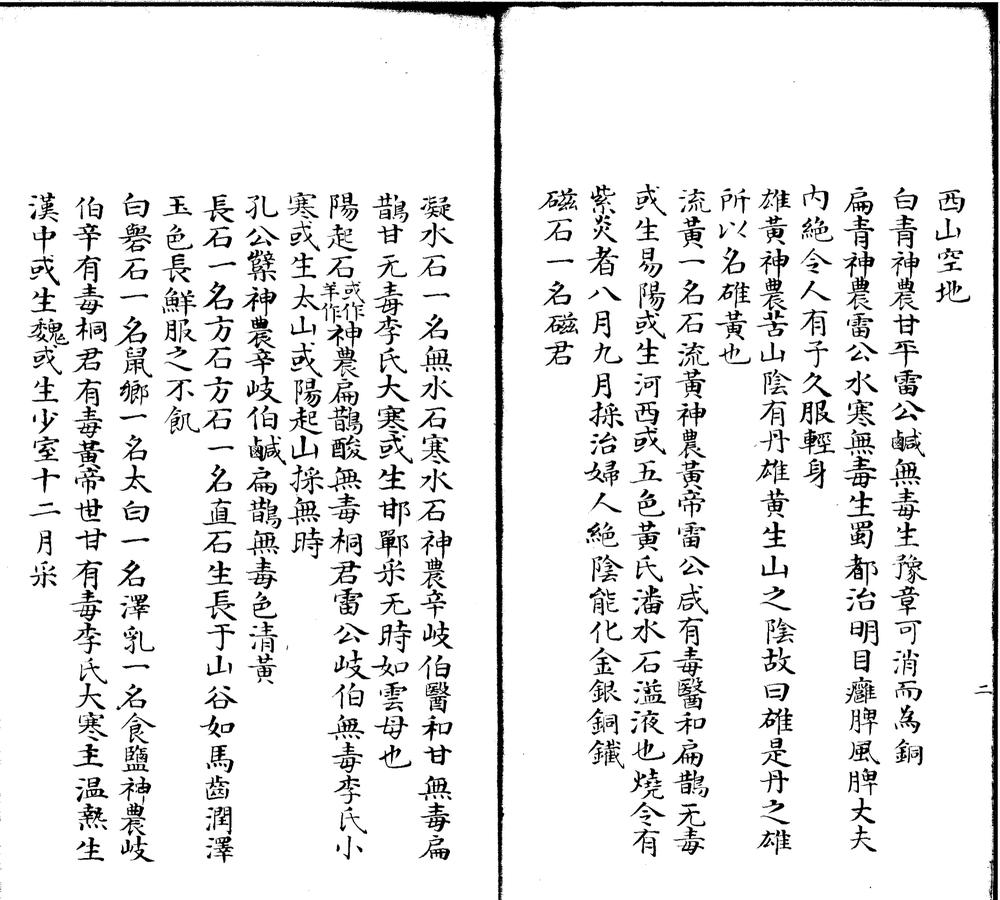 西山空地
白青神農甘平雷公鹹無毒生豫章可消而為銅
扁青神農雷公水寒無毒生蜀都治明目癰脾風脾丈夫
内絶令人有子久服輕身
雄黃神農苦山陰有丹雄黃生山之陰故曰雄是丹之雄
所以名雄黃也
流黃一名石流黃神農黃帝雷公咸有毒醫和扁鵲无毒
或生易陽或生河西或五色黃氏潘水石溢液也燒令有
紫炎者八月九月採治婦人絶陰能化金銀銅鐵
磁石一名磁君
二
凝水石一名無水石寒水石神農辛岐伯醫和甘無毒扁
鵲甘无毒李氏大寒或生邯鄲采无時如雲母也
陽起石或作羊作神農扁鵲酸無毒桐君雷公岐伯無毒李氏小
寒或生太山或陽起山採無時
孔公櫱神農辛岐伯鹹扁鵲無毒色清黃
長石一名方石方石一名直石生長于山谷如馬齒潤澤
玉色長鮮服之不飢
白礜石一名鼠鄉一名太白一名澤乳一名食鹽神農岐
伯辛有毒桐君有毒黃帝世甘有毒李氏大寒主温熱生
漢中或生魏或生少室十二月采